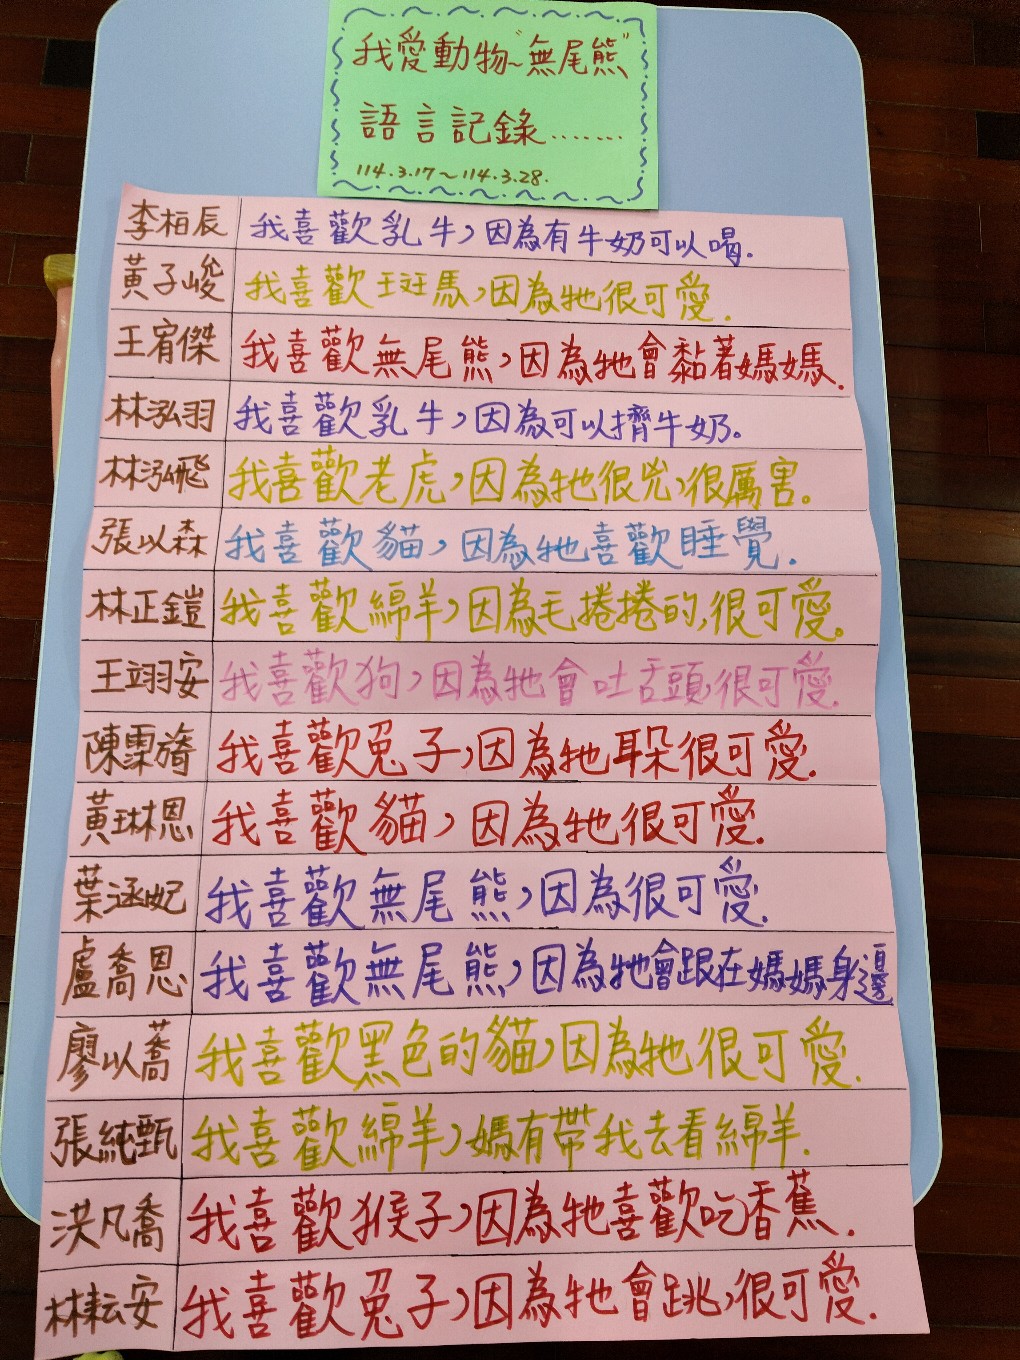 我愛動物~"無尾熊"
語言記錄.......
114.3.17~114.3.28.
李柏辰 我喜歡乳牛,因為有牛奶可以喝.
黃子峻 我喜歡斑馬,因為牠很可愛.
王宥傑 我喜歡無尾熊,因為牠會黏著媽媽.
林泓羽 我喜歡乳牛,因為可以擠牛奶。
林泓飛 我喜歡老虎,因為牠很兇,很厲害。
張以森 我喜歡貓,因為牠喜歡睡覺.
林正鎧 我喜歡綿羊,因為毛捲捲的,很可愛。
王翊安 我喜歡狗,因為牠會吐舌頭,很可愛.
陳霂旖 我喜歡兔子,因為牠耳朵很可愛.
黃琳恩 我喜歡貓,因為牠很可愛.
葉涵妃 我喜歡無尾熊,因為很可愛.
盧喬恩 我喜歡無尾熊,因為牠會跟在媽媽身邊
廖以蕎 我喜歡黑色的貓,因為牠很可愛.
張純甄 我喜歡綿羊,媽有帶我去看綿羊.
洪凡喬 我喜歡猴子,因為牠喜歡吃香蕉.
林耘安 我喜歡兔子,因為牠會跳,很可愛.